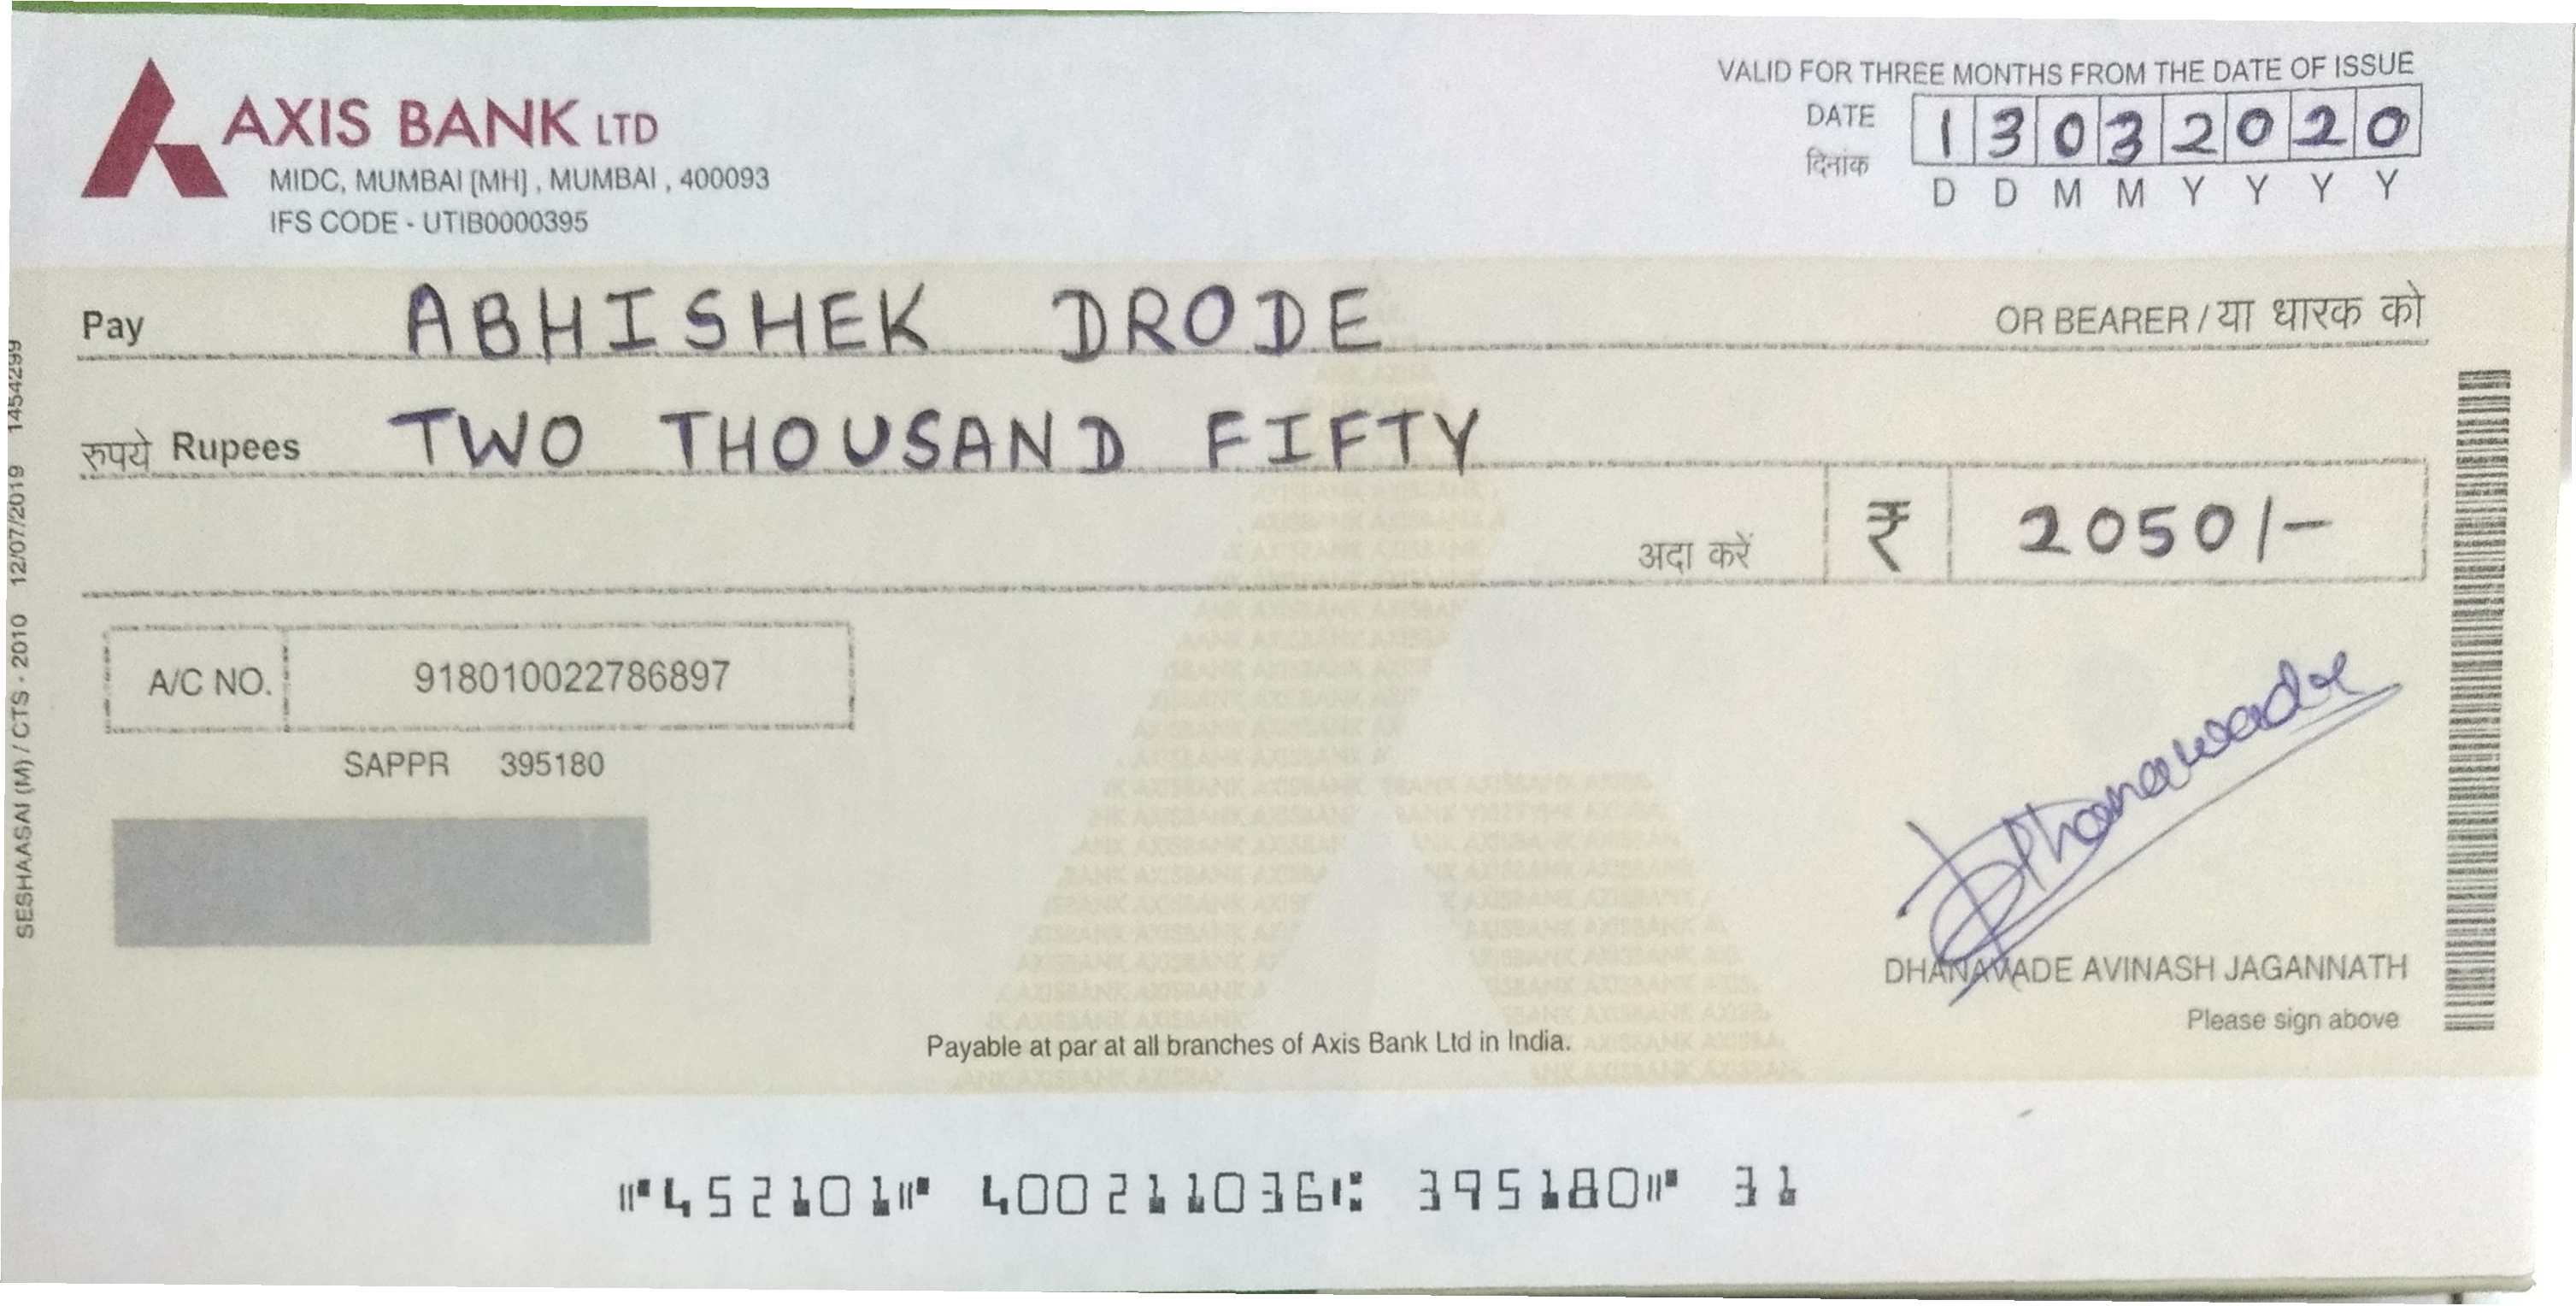 AXIS BANK LTD
MIDC, MUMBAI [MH] , MUMBAI , 400093
IFS CODE - UTIB0000395
VALID FOR THREE MONTHS FROM THE DATE OF ISSUE
DATE
दिनांक
1 3 0 3 2 0 2 0
D D M M Y Y Y Y
Pay ABHISHEK DRODE OR BEARER / या धारक को
रुपये Rupees TWO THOUSAND FIFTY
अदा करें ₹ 2050/-
A/C NO. 918010022786897
SAPPR 395180
Dhanawade
DHANAWADE AVINASH JAGANNATH
Please sign above
Payable at par at all branches of Axis Bank Ltd in India.
SESHAASAI (M) / CTS - 2010 12/07/2019 1454299
⑈452101⑈ 400211036⑆ 395180⑈ 31